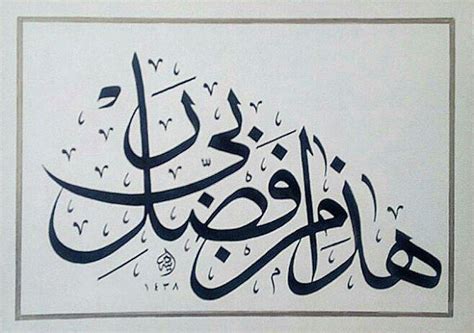 هذا من فضل ربي
١٤٣٨